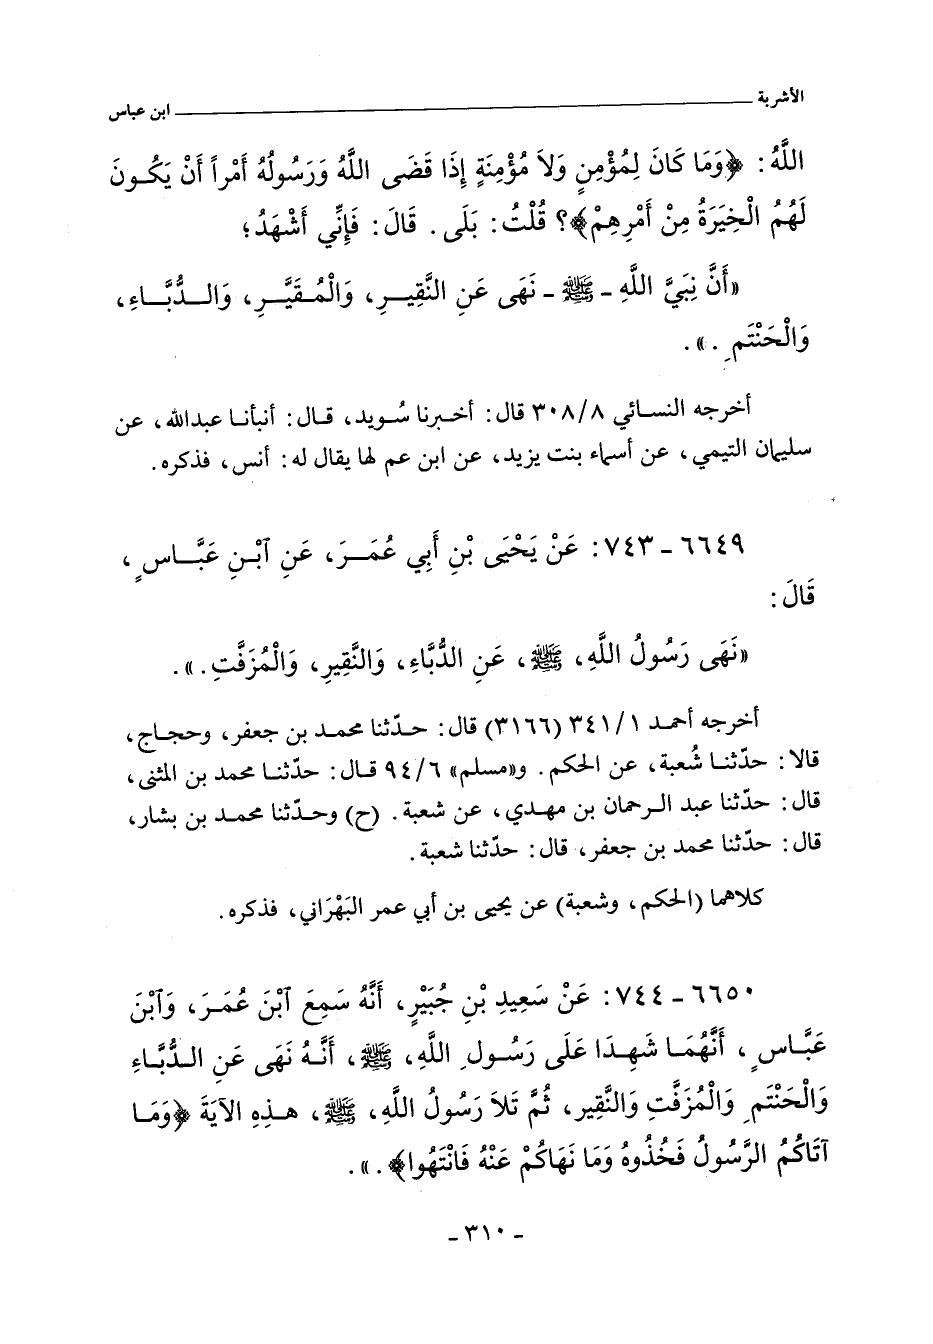 الأشربة ابن عباس
اللَّهُ: ﴿وَمَا كَانَ لِمُؤْمِنٍ وَلاَ مُؤْمِنَةٍ إِذَا قَضَى اللَّهُ وَرَسُولُهُ أَمْراً أَنْ يَكُونَ
لَهُمُ الْخِيَرَةُ مِنْ أَمْرِهِمْ﴾؟ قُلْتُ: بَلَى. قَالَ: فَإِنِّي أَشْهَدُ؛
«أَنَّ نَبِيَّ اللَّهِ - ﷺ - نَهَى عَنِ النَّقِيرِ، وَالْمُقَيَّرِ، وَالدُّبَّاءِ،
وَالْحَنْتَمِ.».
أخرجه النسائي ٣٠٨/٨ قال: أخبرنا سُويد، قال: أنبأنا عبدالله، عن
سليمان التيمي، عن أسماء بنت يزيد، عن ابن عم لها يقال له: أنس، فذكره.
٦٦٤٩ - ٧٤٣: عَنْ يَحْيَى بْنِ أَبِي عُمَرَ، عَنِ آبْنِ عَبَّاسٍ،
قَالَ:
«نَهَى رَسُولُ اللَّهِ، ﷺ، عَنِ الدُّبَّاءِ، وَالنَّقِيرِ، وَالْمُزَفَّتِ.».
أخرجه أحمد ٣٤١/١ (٣١٦٦) قال: حدّثنا محمد بن جعفر، وحجاج،
قالا: حدّثنا شُعبة، عن الحكم. و«مسلم» ٩٤/٦ قال: حدّثنا محمد بن المثنى،
قال: حدّثنا عبد الرحمان بن مهدي، عن شعبة. (ح) وحدّثنا محمد بن بشار،
قال: حدّثنا محمد بن جعفر، قال: حدّثنا شعبة.
كلاهما (الحكم، وشعبة) عن يحيى بن أبي عمر البَهْرَاني، فذكره.
٦٦٥٠ - ٧٤٤: عَنْ سَعِيدِ بْنِ جُبَيْرٍ، أَنَّهُ سَمِعَ آبْنَ عُمَرَ، وَآبْنَ
عَبَّاسٍ، أَنَّهُمَا شَهِدَا عَلَى رَسُولِ اللَّهِ، ﷺ، أَنَّهُ نَهَى عَنِ الدُّبَّاءِ
وَالْحَنْتَمِ وَالْمُزَفَّتِ وَالنَّقِيرِ، ثُمَّ تَلاَ رَسُولُ اللَّهِ، ﷺ، هذِهِ الآيَةَ ﴿وَمَا
آتَاكُمُ الرَّسُولُ فَخُذُوهُ وَمَا نَهَاكُمْ عَنْهُ فَانْتَهُوا﴾.».
- ٣١٠ -